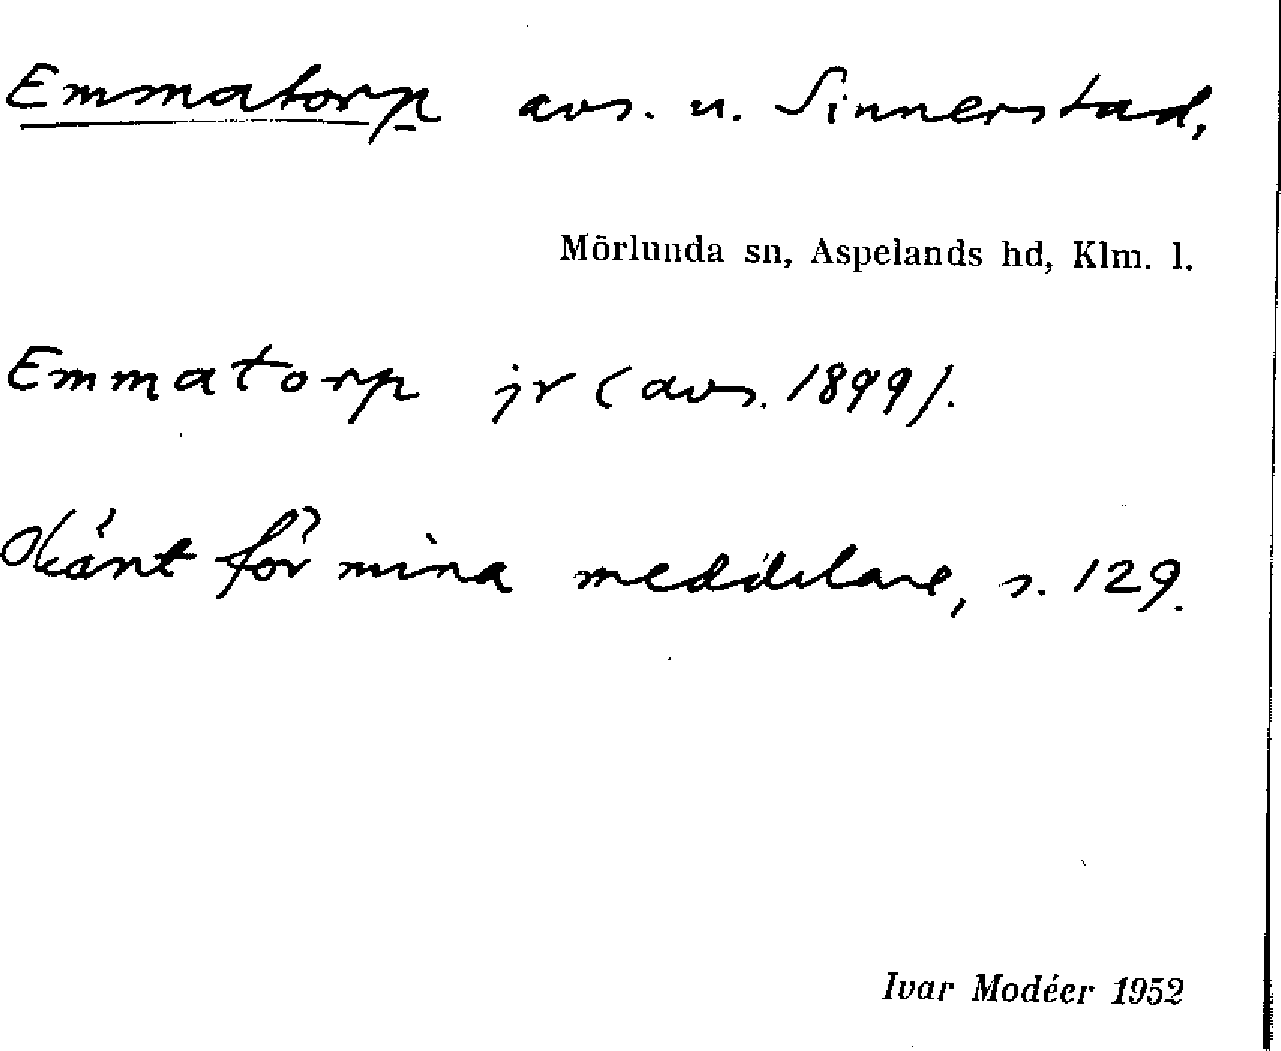 Emmatorp avs. u. Sinnerstad,
Mörlunda sn, Aspelands hd, Klm. l.
Emmatorp jr (avs. 1899).
Okänt för mina meddelare, s. 129.
Ivar Modéer 1952